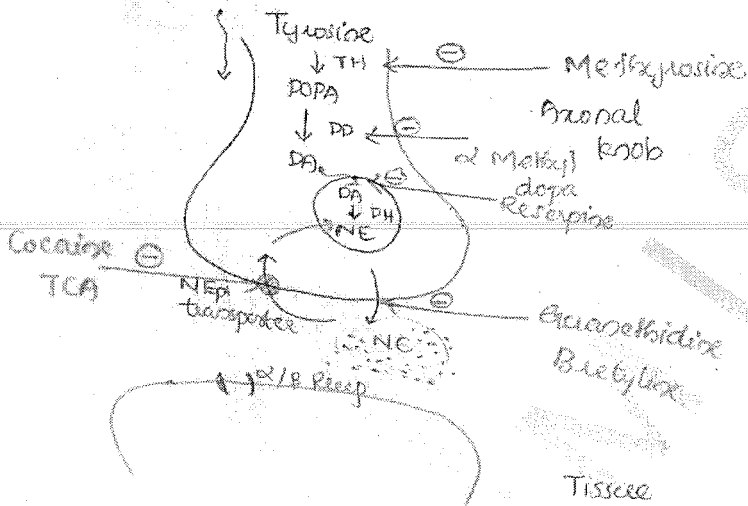 Tyrosine
↓ TH ⊖ Methyrosine
DOPA
Axonal
knob
↓ DD ⊖ α Methyl
dopa
DA ⊖
Reserpine
DA
↓ DH
NE
Cocaine ⊖
TCA
NEpi
transporter
⊖ Guanethidine
Bretyline
NE
α/β Recep
Tissue